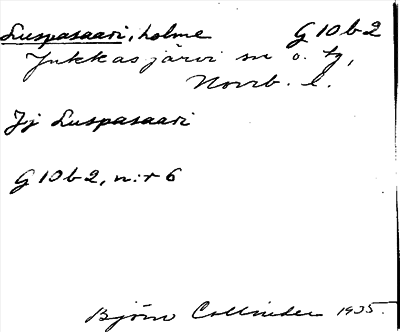 Luspasaari, holme G 10 b 2
Jukkasjärvi sn o. tg,
Norrb. l.
Jj Luspasaari
G 10 b 2, n:r 6
Björn Collinder 1935.